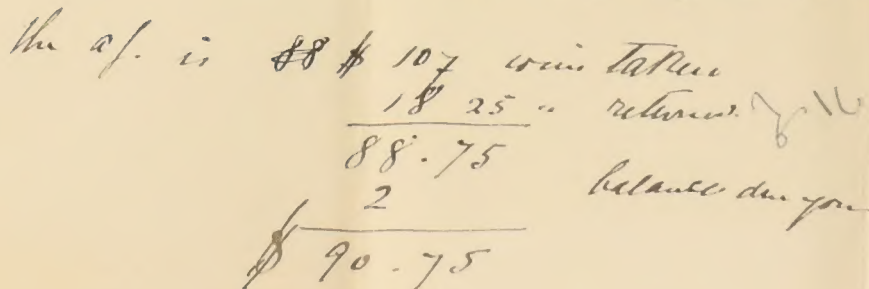 The a/. is $ 107 wine taken
18 25 " returned
88.75
2 balance due you
$ 90.75